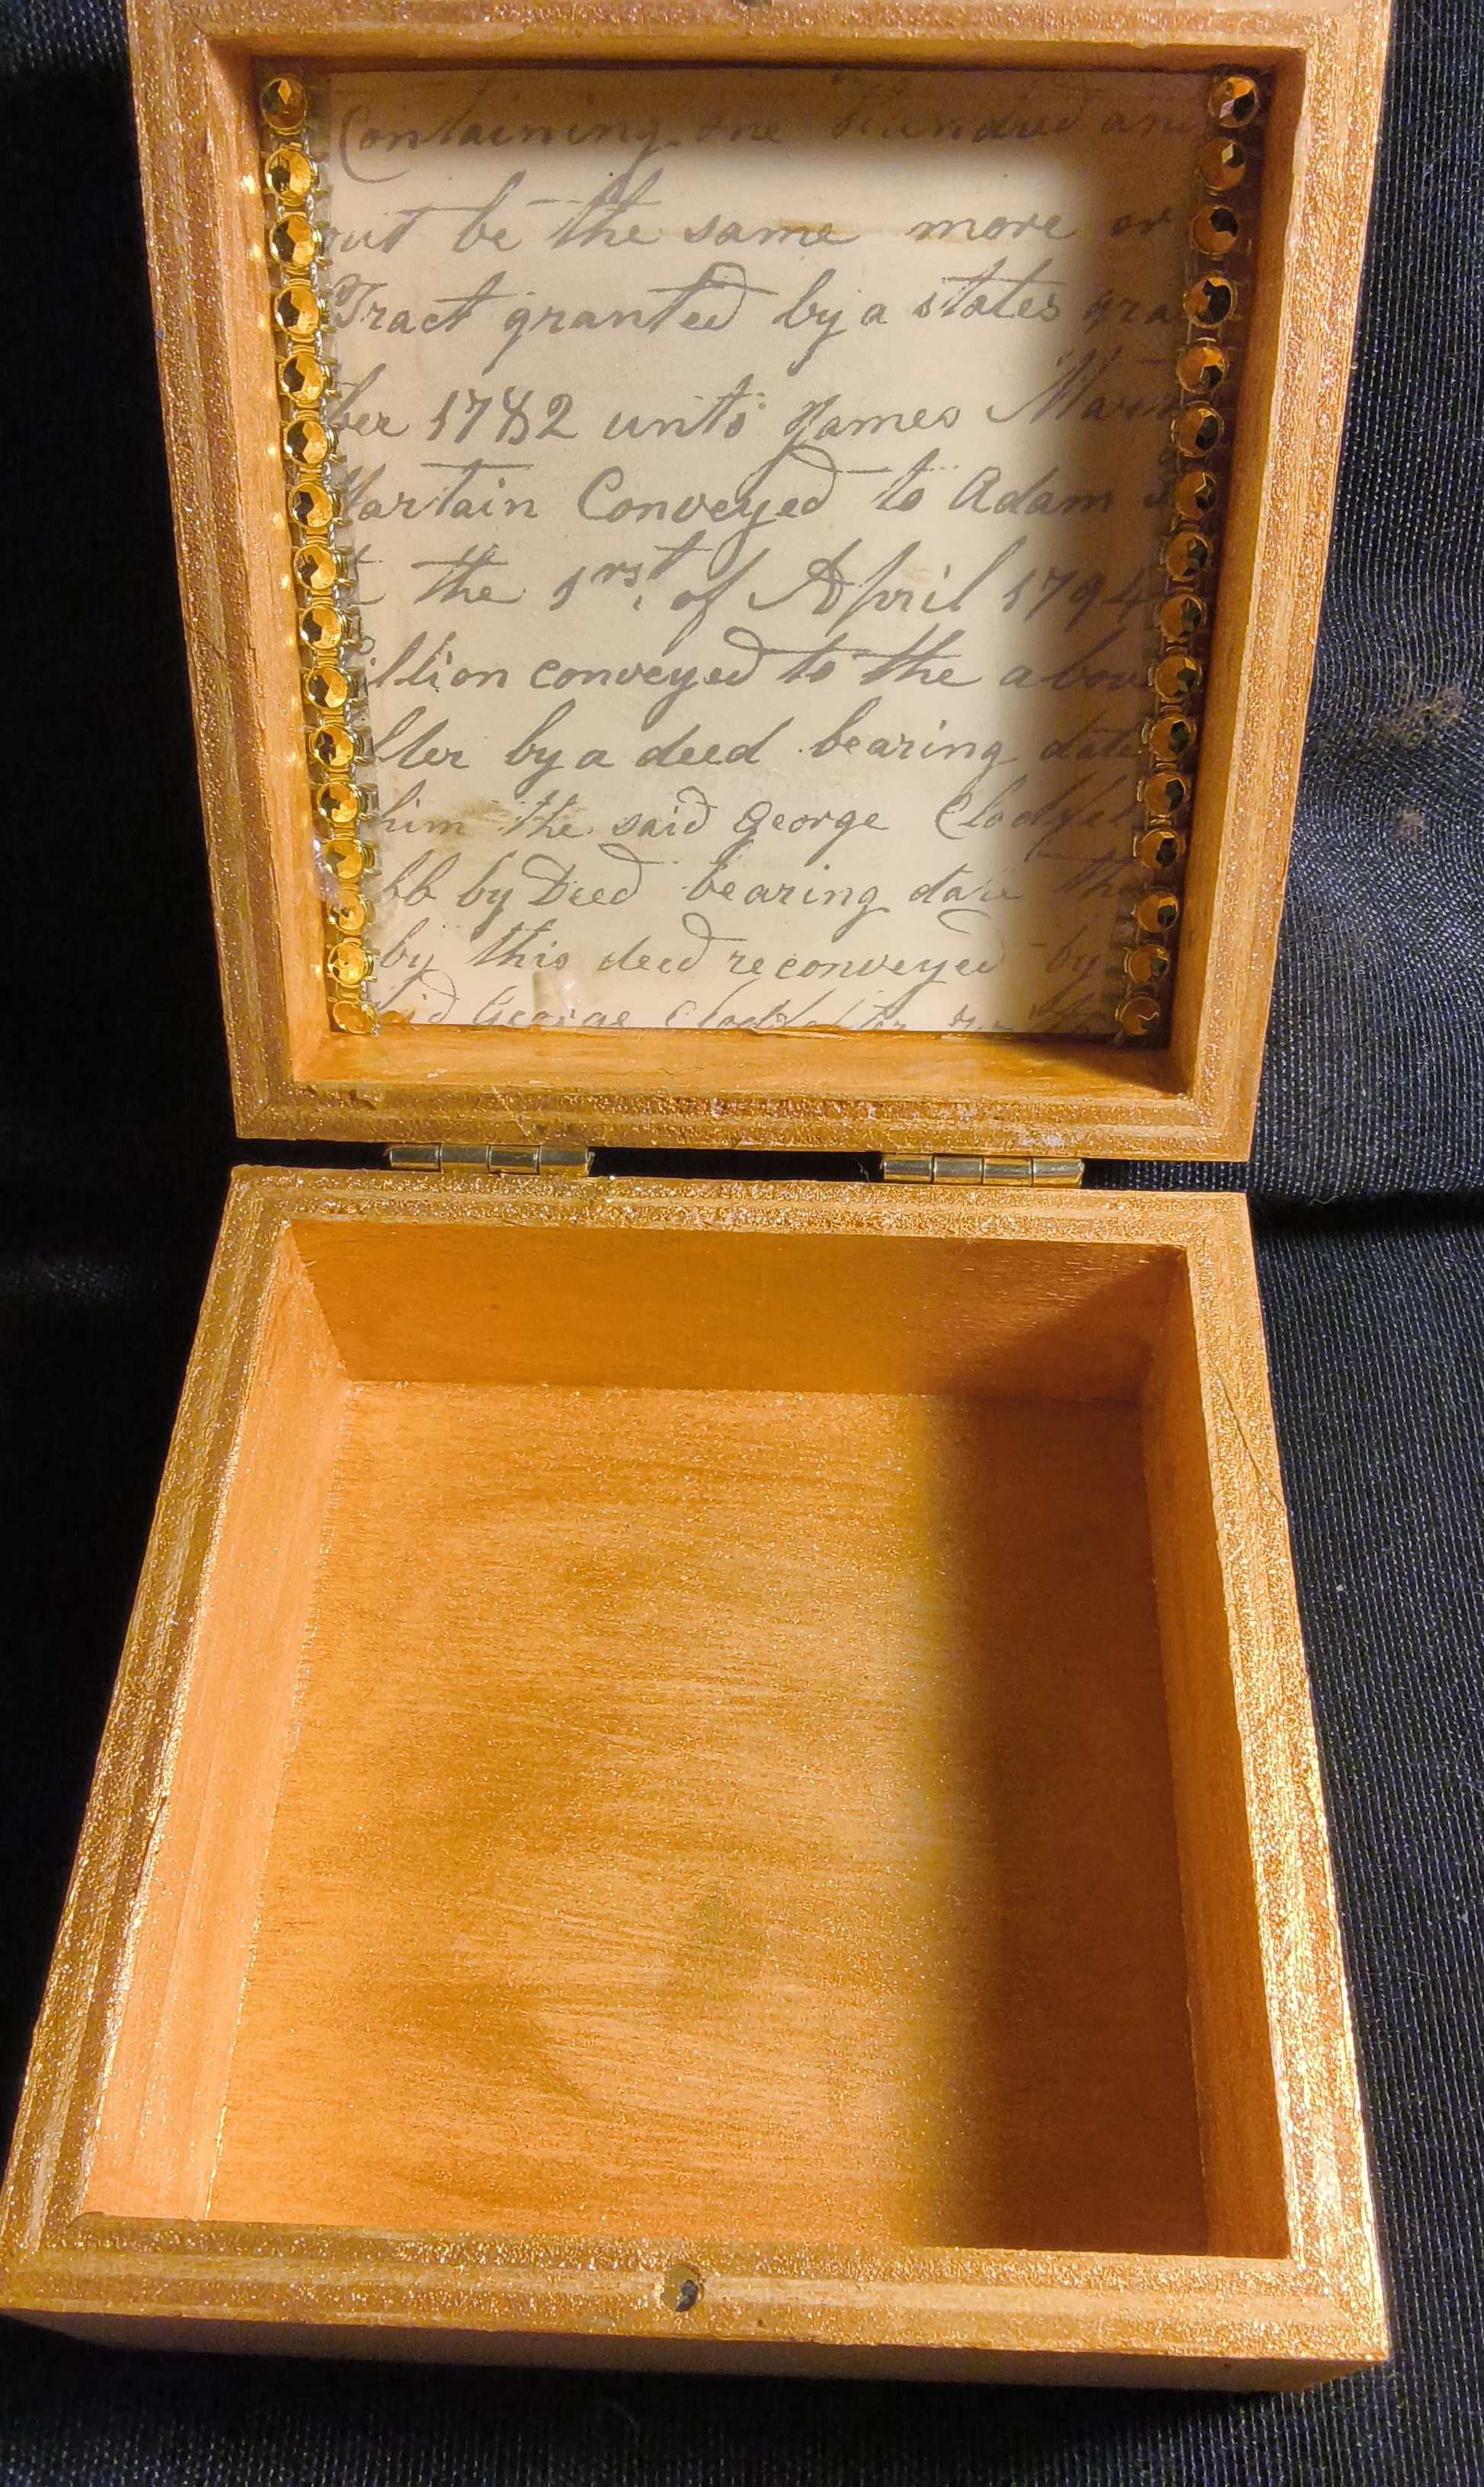 Containing one Hundred and
out be the same more or
Tract granted by a states gra
ber 1782 unto James Mar
Martain Conveyed to Adam
the 1rst of April 1794
illion conveyed to the above
ller by a deed bearing date
him the said George
bb by Deed bearing date the
by this deed reconveyed by
George